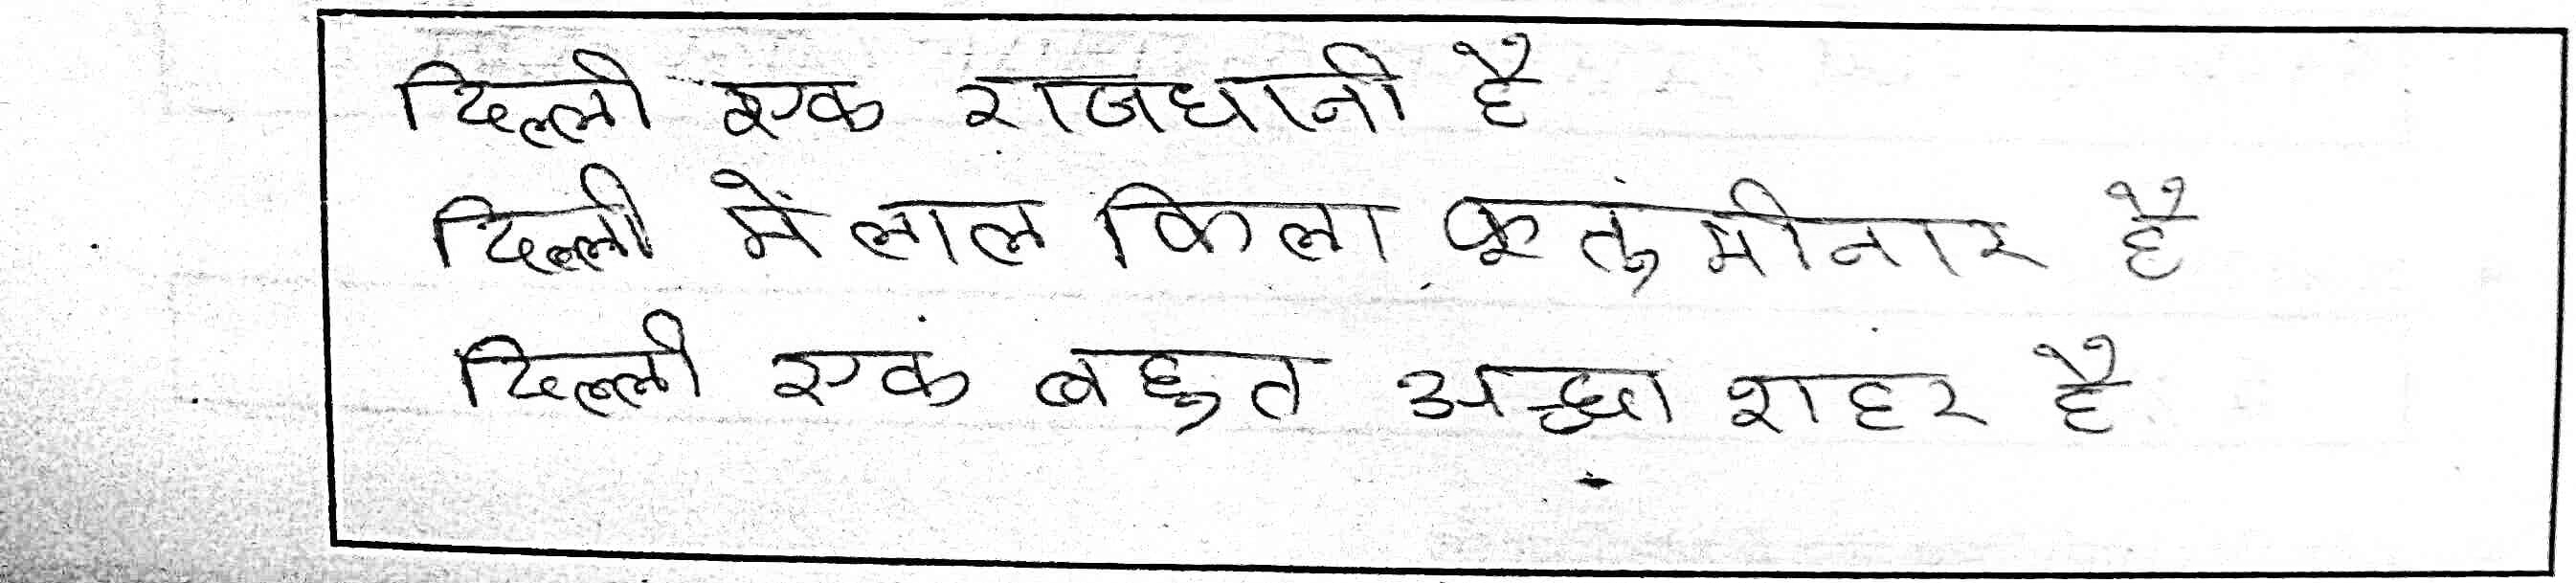 दिल्ली एक राजधानी है
दिल्ली में लाल किला कूतुं मीनार है
दिल्ली एक बहुत अच्छा शहर है